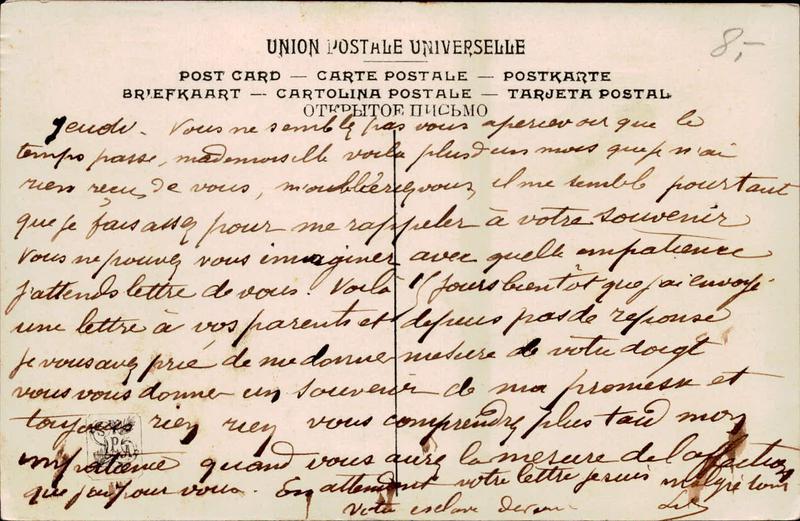 8,-
UNION POSTALE UNIVERSELLE
POST CARD — CARTE POSTALE — POSTKARTE
BRIEFKAART — CARTOLINA POSTALE — TARJETA POSTAL
ОТКРЫТОЕ ПИСЬМО
Jeudi. Vous ne semblez pas vous apercevoir que le
temps passe, mademoiselle voila plus d'un mois que je n'ai
rien reçu de vous, m'oublieriez vous, il me semble pourtant
que je fais assez pour me rappeler à votre souvenir
Vous ne pouvez vous imaginer avec quelle impatience
j'attends lettre de vous. Voilà 15 jours bientôt que j'ai envoyé
une lettre à vos parents et depuis pas de reponse
je vous avez prié de me donner mesure de votre doigt
vous vous donner un souvenir de ma promesse et
toujours rien rien vous comprendrez plus tard mon
impatience quand vous aurez la mesure de l'affection
que j'ai pour vous. En attendant votre lettre je suis malgré tout
Votre esclave